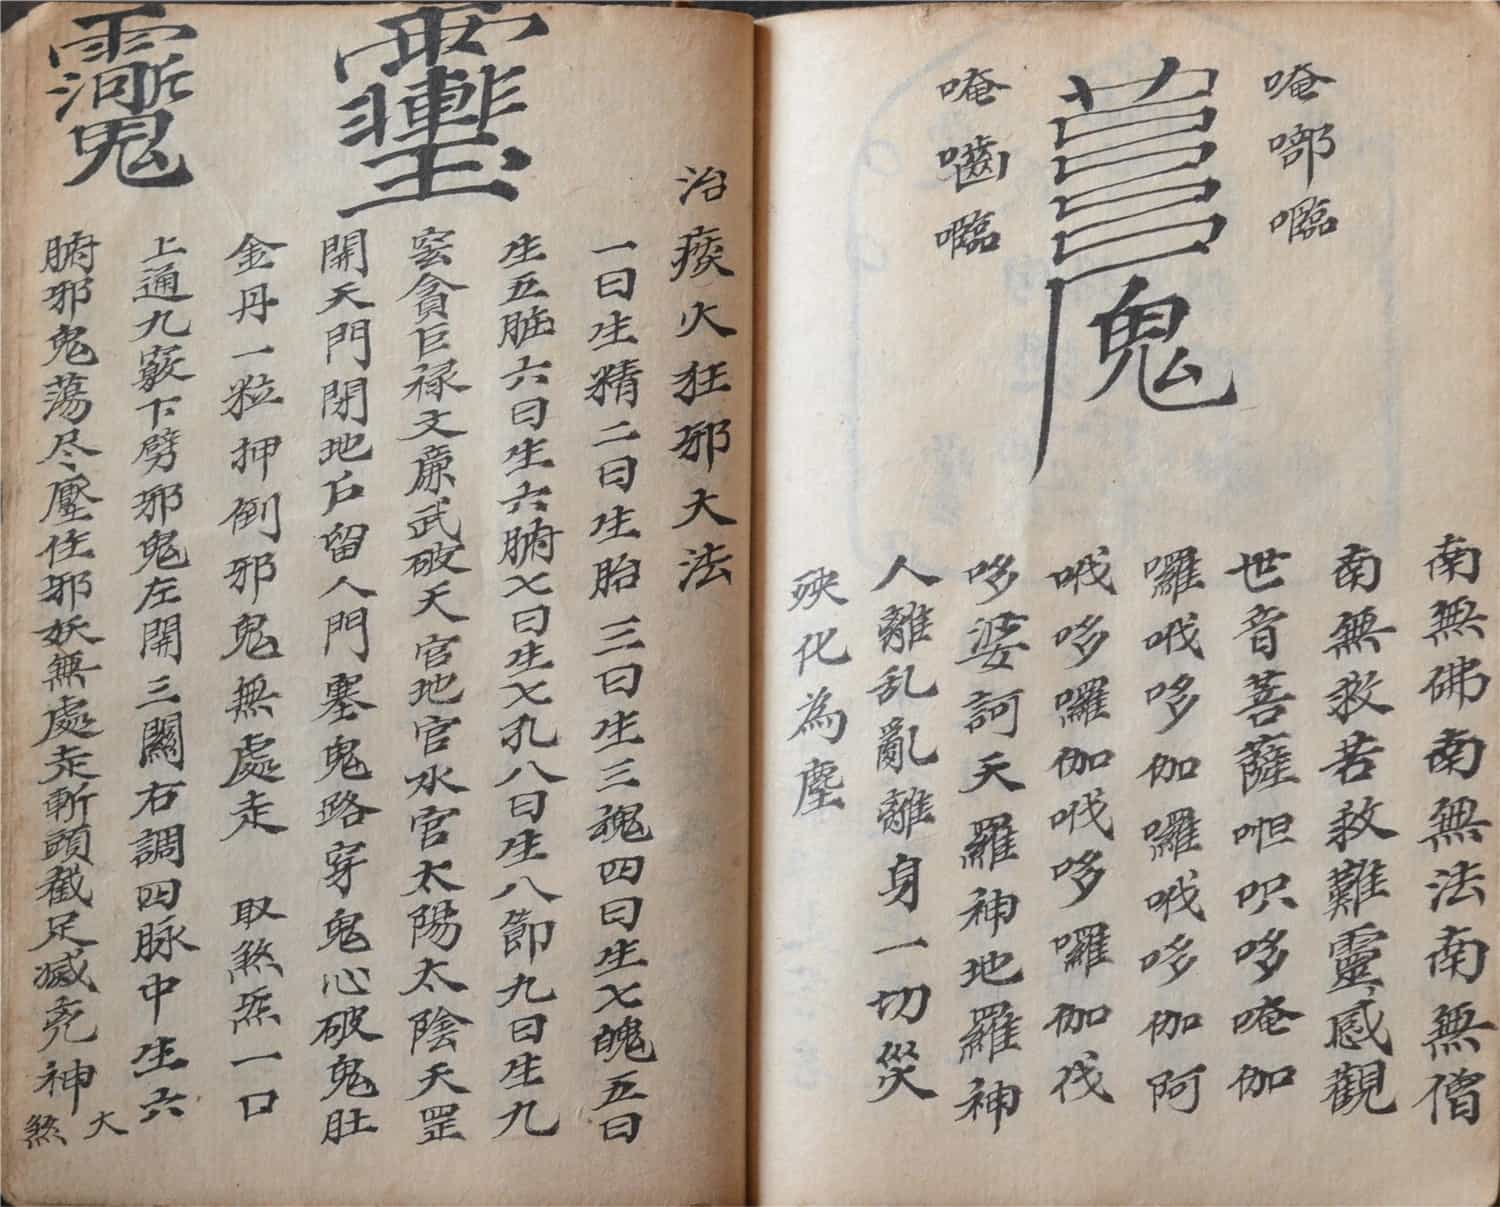 唵啷㘕
唵囓㘕
鬼
南無佛南無法南無僧
南無救苦救難靈感觀
世音菩薩呾呎哆唵伽
囉哦哆伽囉哦哆伽阿
哦哆囉伽哦哆囉伽伐
哆婆訶天羅神地羅神
人離乱亂離身一切災
殃化為塵
治痰火狂邪大法
一曰生精二曰生胎三曰生三魂四曰生七魄五曰
生五脏六曰生六腑七曰生七孔八曰生八節九曰生九
竅貪巨禄文廉武破天官地官水官太陽太陰天罡
開天門閉地户留人門塞鬼路穿鬼心破鬼肚
金丹一粒押倒邪鬼無處走 取煞炁一口
上通九竅下劈邪鬼左開三關右調四脉中生六
腑邪鬼蕩尽壓住邪妖無處走斬頭截足滅児神
大
煞